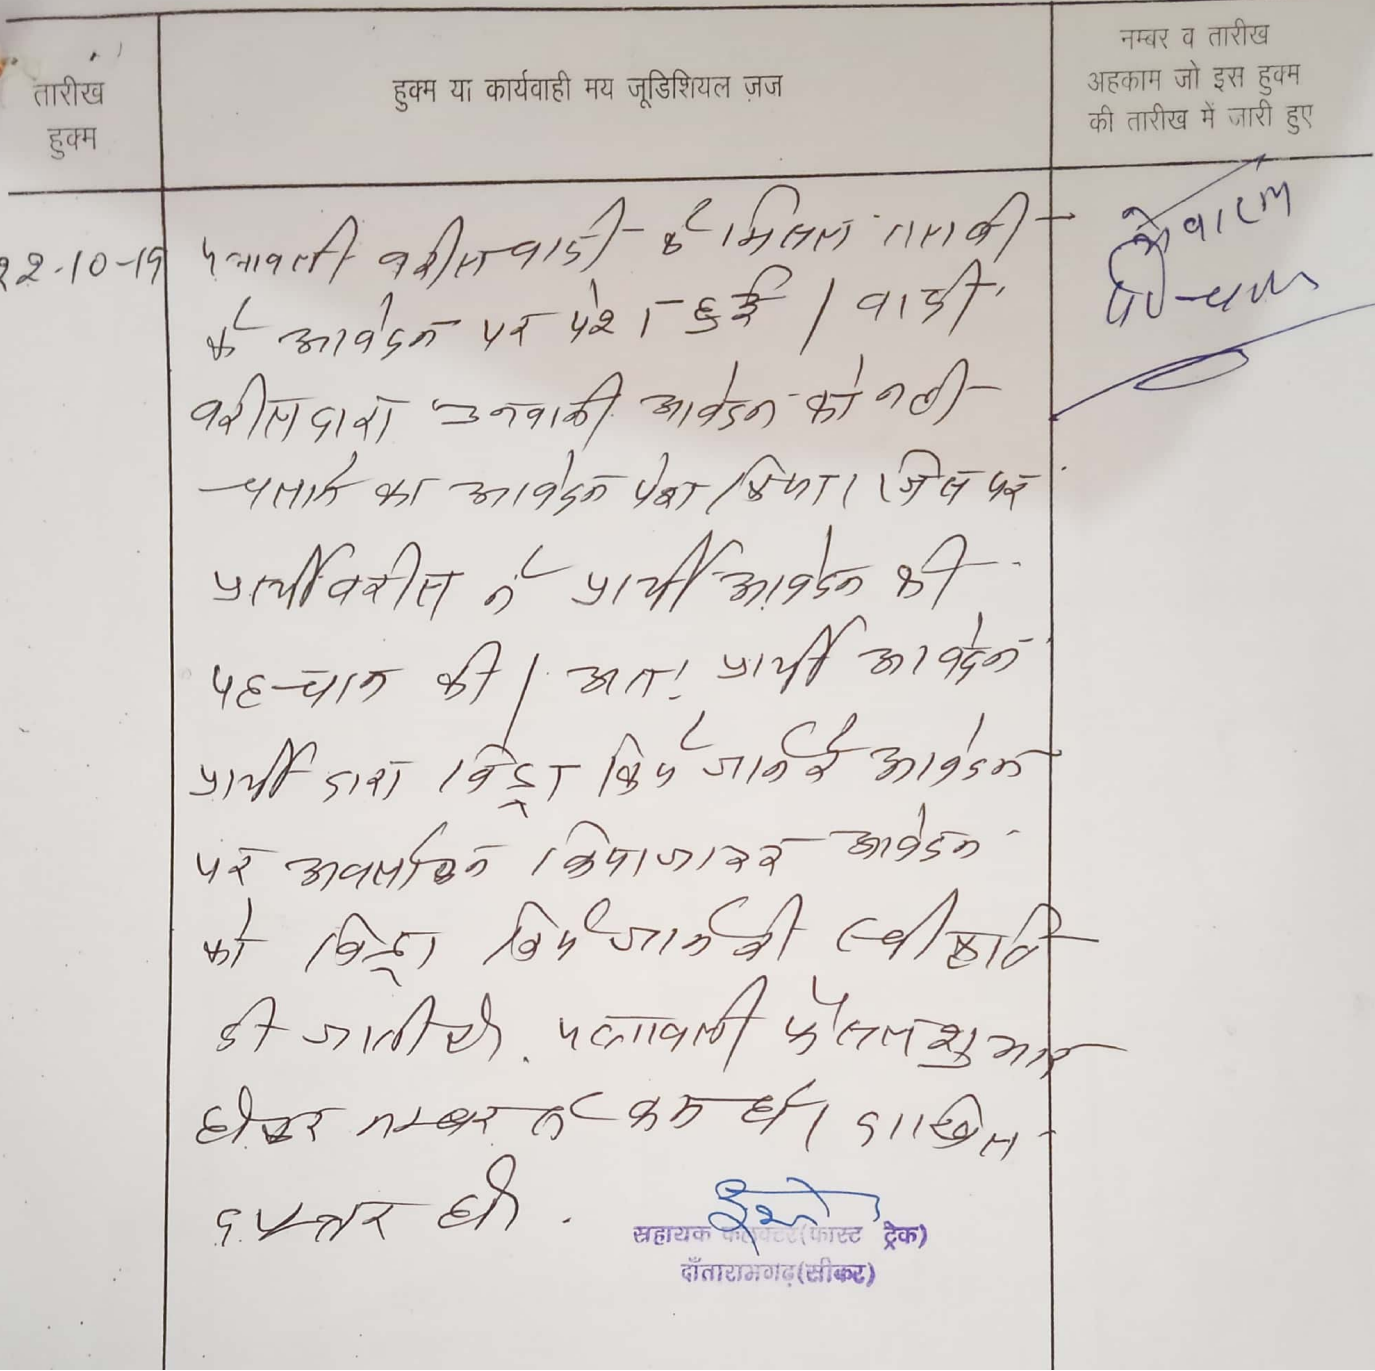 तारीख
हुक्म
हुक्म या कार्यवाही मय जूडिशियल ज़ज
नम्बर व तारीख
अहकाम जो इस हुक्म
की तारीख में जारी हुए
22-10-19
पत्रावली वकील वादी के मिसल तलबी
के आवेदन पर पेश हुई । वादी
वकील द्वारा आवेदन को नही
चलाने का आवेदन पेश किया । जिस पर
प्रार्थी वकील ने प्रार्थी आवेदन की
पहचान की । अतः प्रार्थी आवेदन
प्रार्थी द्वारा विड्रा किये जाने के आवेदन
पर अवलोकन किया जाकर आवेदन
को विड्रा किये जाने की स्वीकृति
दी जाती है . पत्रावली फैसल शुमार
होकर नम्बर से कम हो । दाखिल
दफ्तर हो .
सहायक कलक्टर(फास्ट ट्रेक)
दाँतारामगढ़(सीकर)